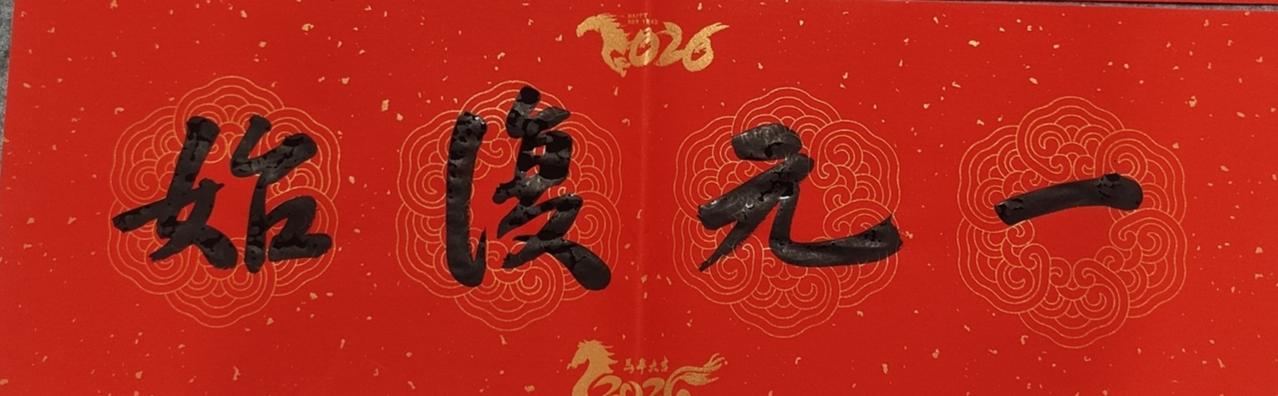 HAPPY NEW YEAR
2026
一元復始
马年大吉
2026